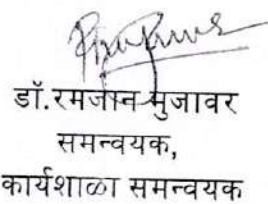 डॉ.रमजान मुजावर
समन्वयक,
कार्यशाळा समन्वयक